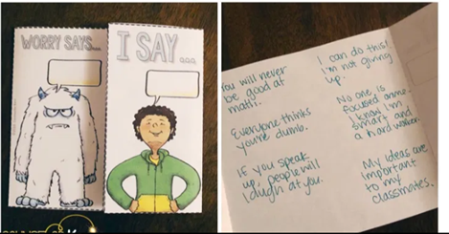 WORRY SAYS...
I SAY ...
You will never
be good at
math.
Everyone thinks
you're dumb.
IF you speak
up, people will
laugh at you.
I can do this!
I'm not giving
up.
No one is
focused on me.
I know I'm
smart and
a hard worker.
My ideas are
important
to my
classmates.